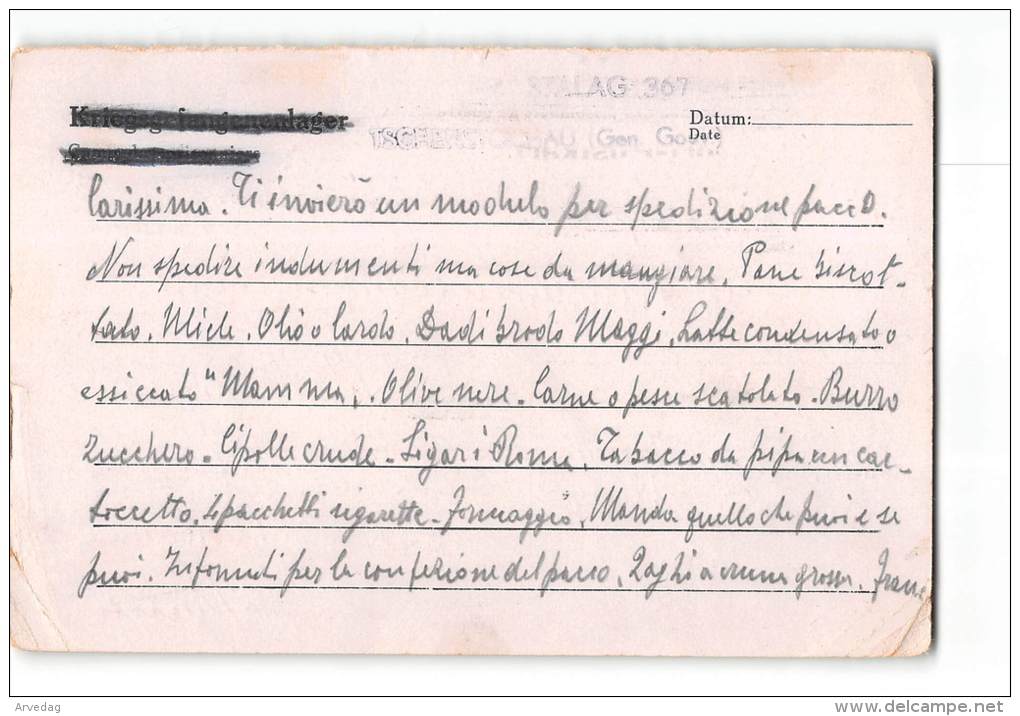 STALAG 367
Kriegsgefangenenlager
Datum:
Date
TSCHENSTOCHAU (Gen. Gouv.)
Carissima. Ti invierò un modulo per spedizione pacco.
Non spedire indumenti ma cose da mangiare. Pane biscot-
tato. Miele. Olio o lardo. Dadi brodo Maggi. Latte condensato o
essiccato "Mamma". Olive nere. Carne o pesce scatolato. Burro
Zucchero. Cipolle crude. Sigari Roma. Tabacco da pipa un car-
toccetto. 4 pacchetti sigarette. Formaggio. Manda quello che puoi e se
puoi. Informati per la confezione del pacco. 2 aghi a cruna grossa.
Arvedag
www.delcampe.net